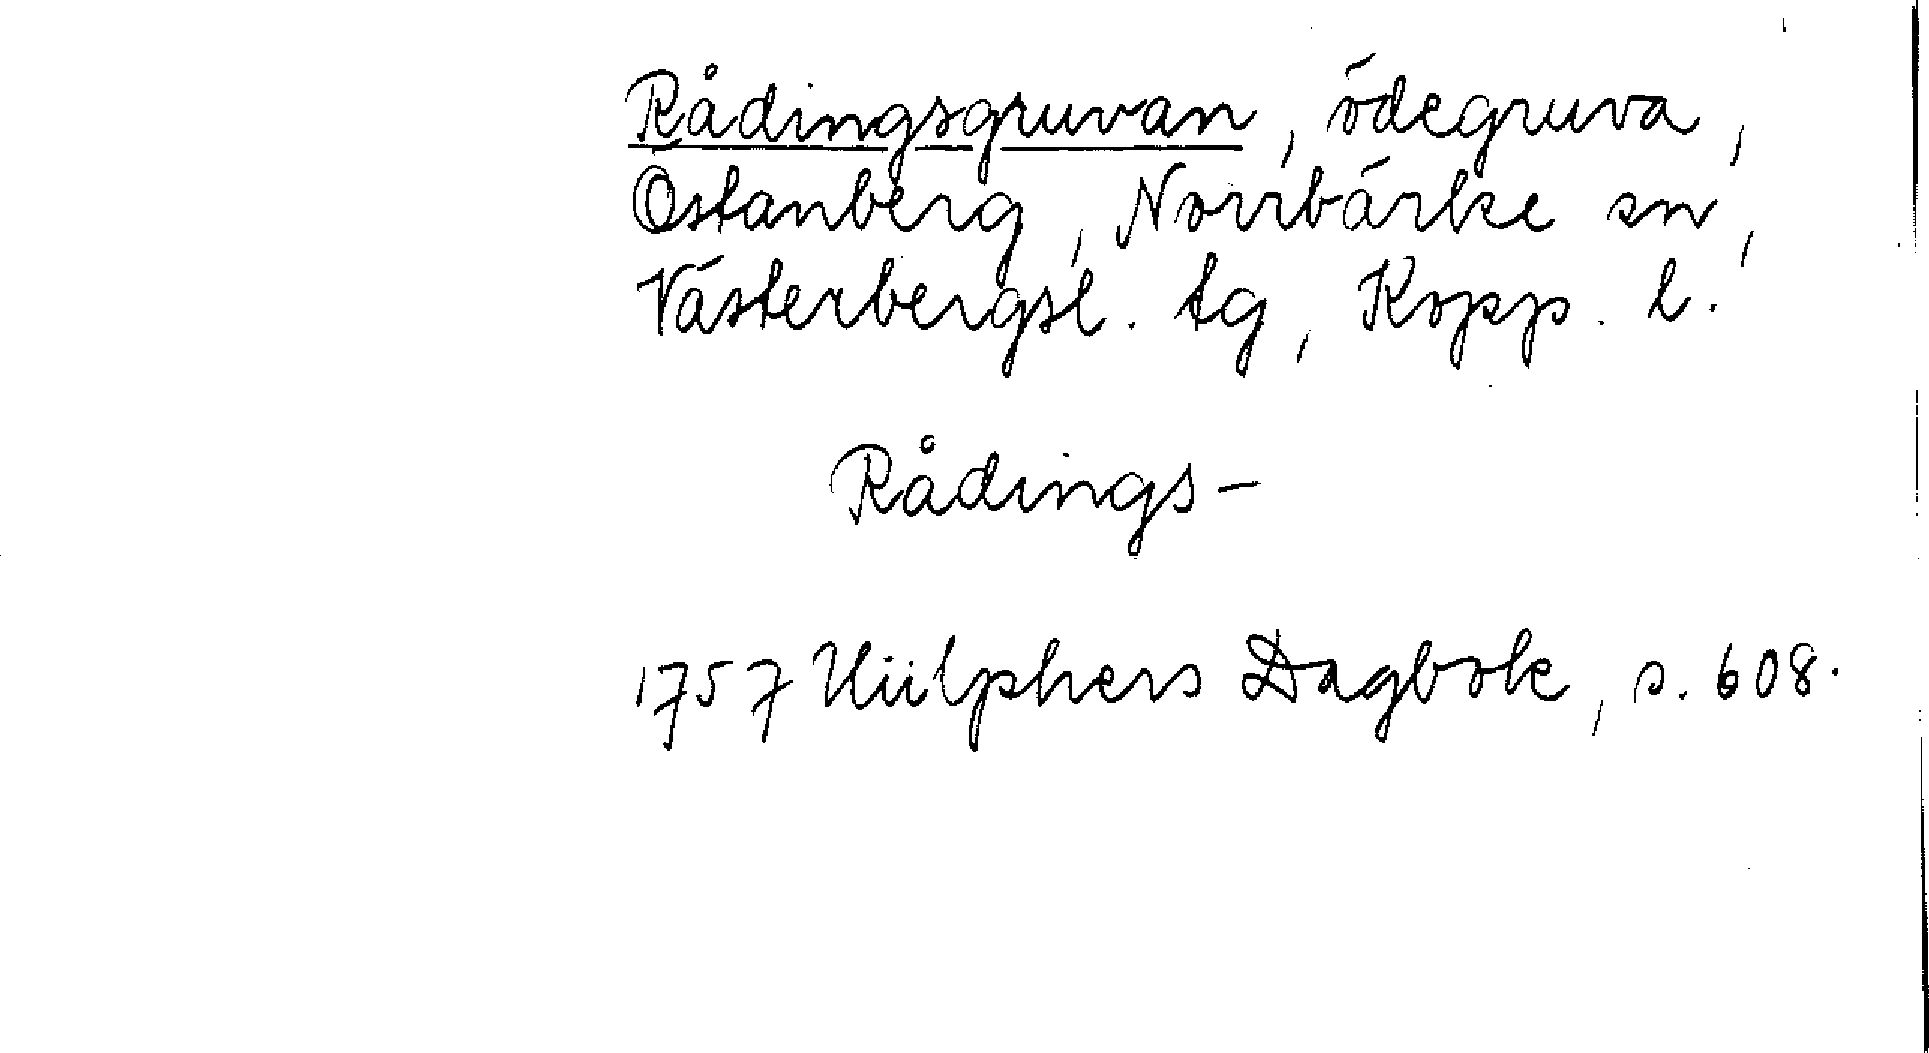 Rådingsgruvan, ödegruva,
Östanberg, Norrbärke sn,
Västerbergsl. tg, Kopp. l.
Rådings-
1757 Hülphers Dagbok, s. 608.